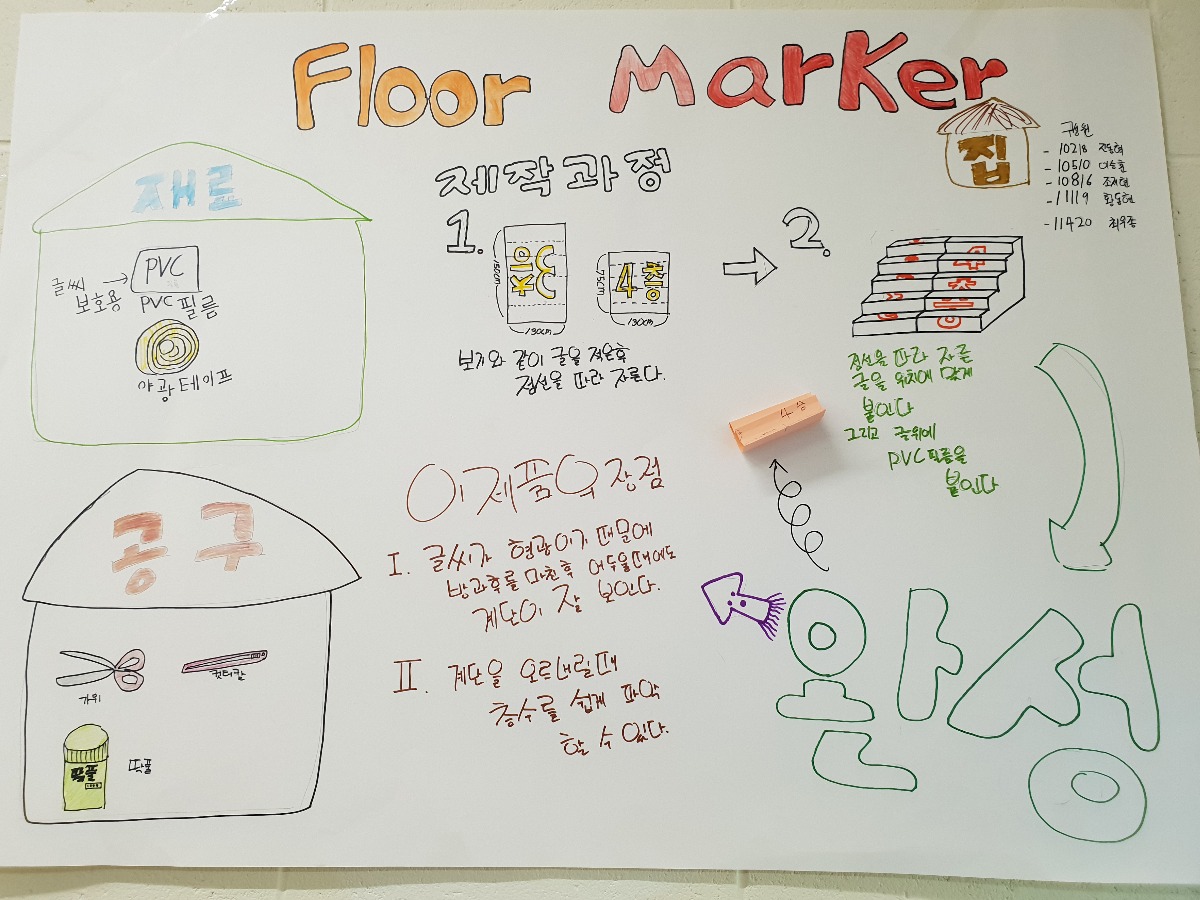 Floor Marker
집
구성원
- 10218
- 10510 이승훈
- 10816
- 11119 황동현
- 11420 최우종
재료
글씨
보호용
PVC
PVC 필름
야광테이프
제작과정
1.
150cm
3층
130cm
75cm
4층
130cm
보기와 같이 글을 적은후
점선을 따라 자른다.
2.
4층
점선을 따라 자른
글을 위치에 맞게
붙인다
그리고 글위에
PVC필름을
붙인다
4층
공구
가위
컷터칼
딱풀
딱풀
이제품의 장점
I. 글씨가 형광이기 때문에
방과후를 마친후 어두울때에도
계단이 잘 보인다.
II. 계단을 오르내릴때
층수를 쉽게 파악
할 수 있다.
완성